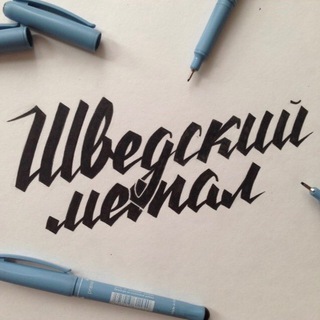 Шведский
метал